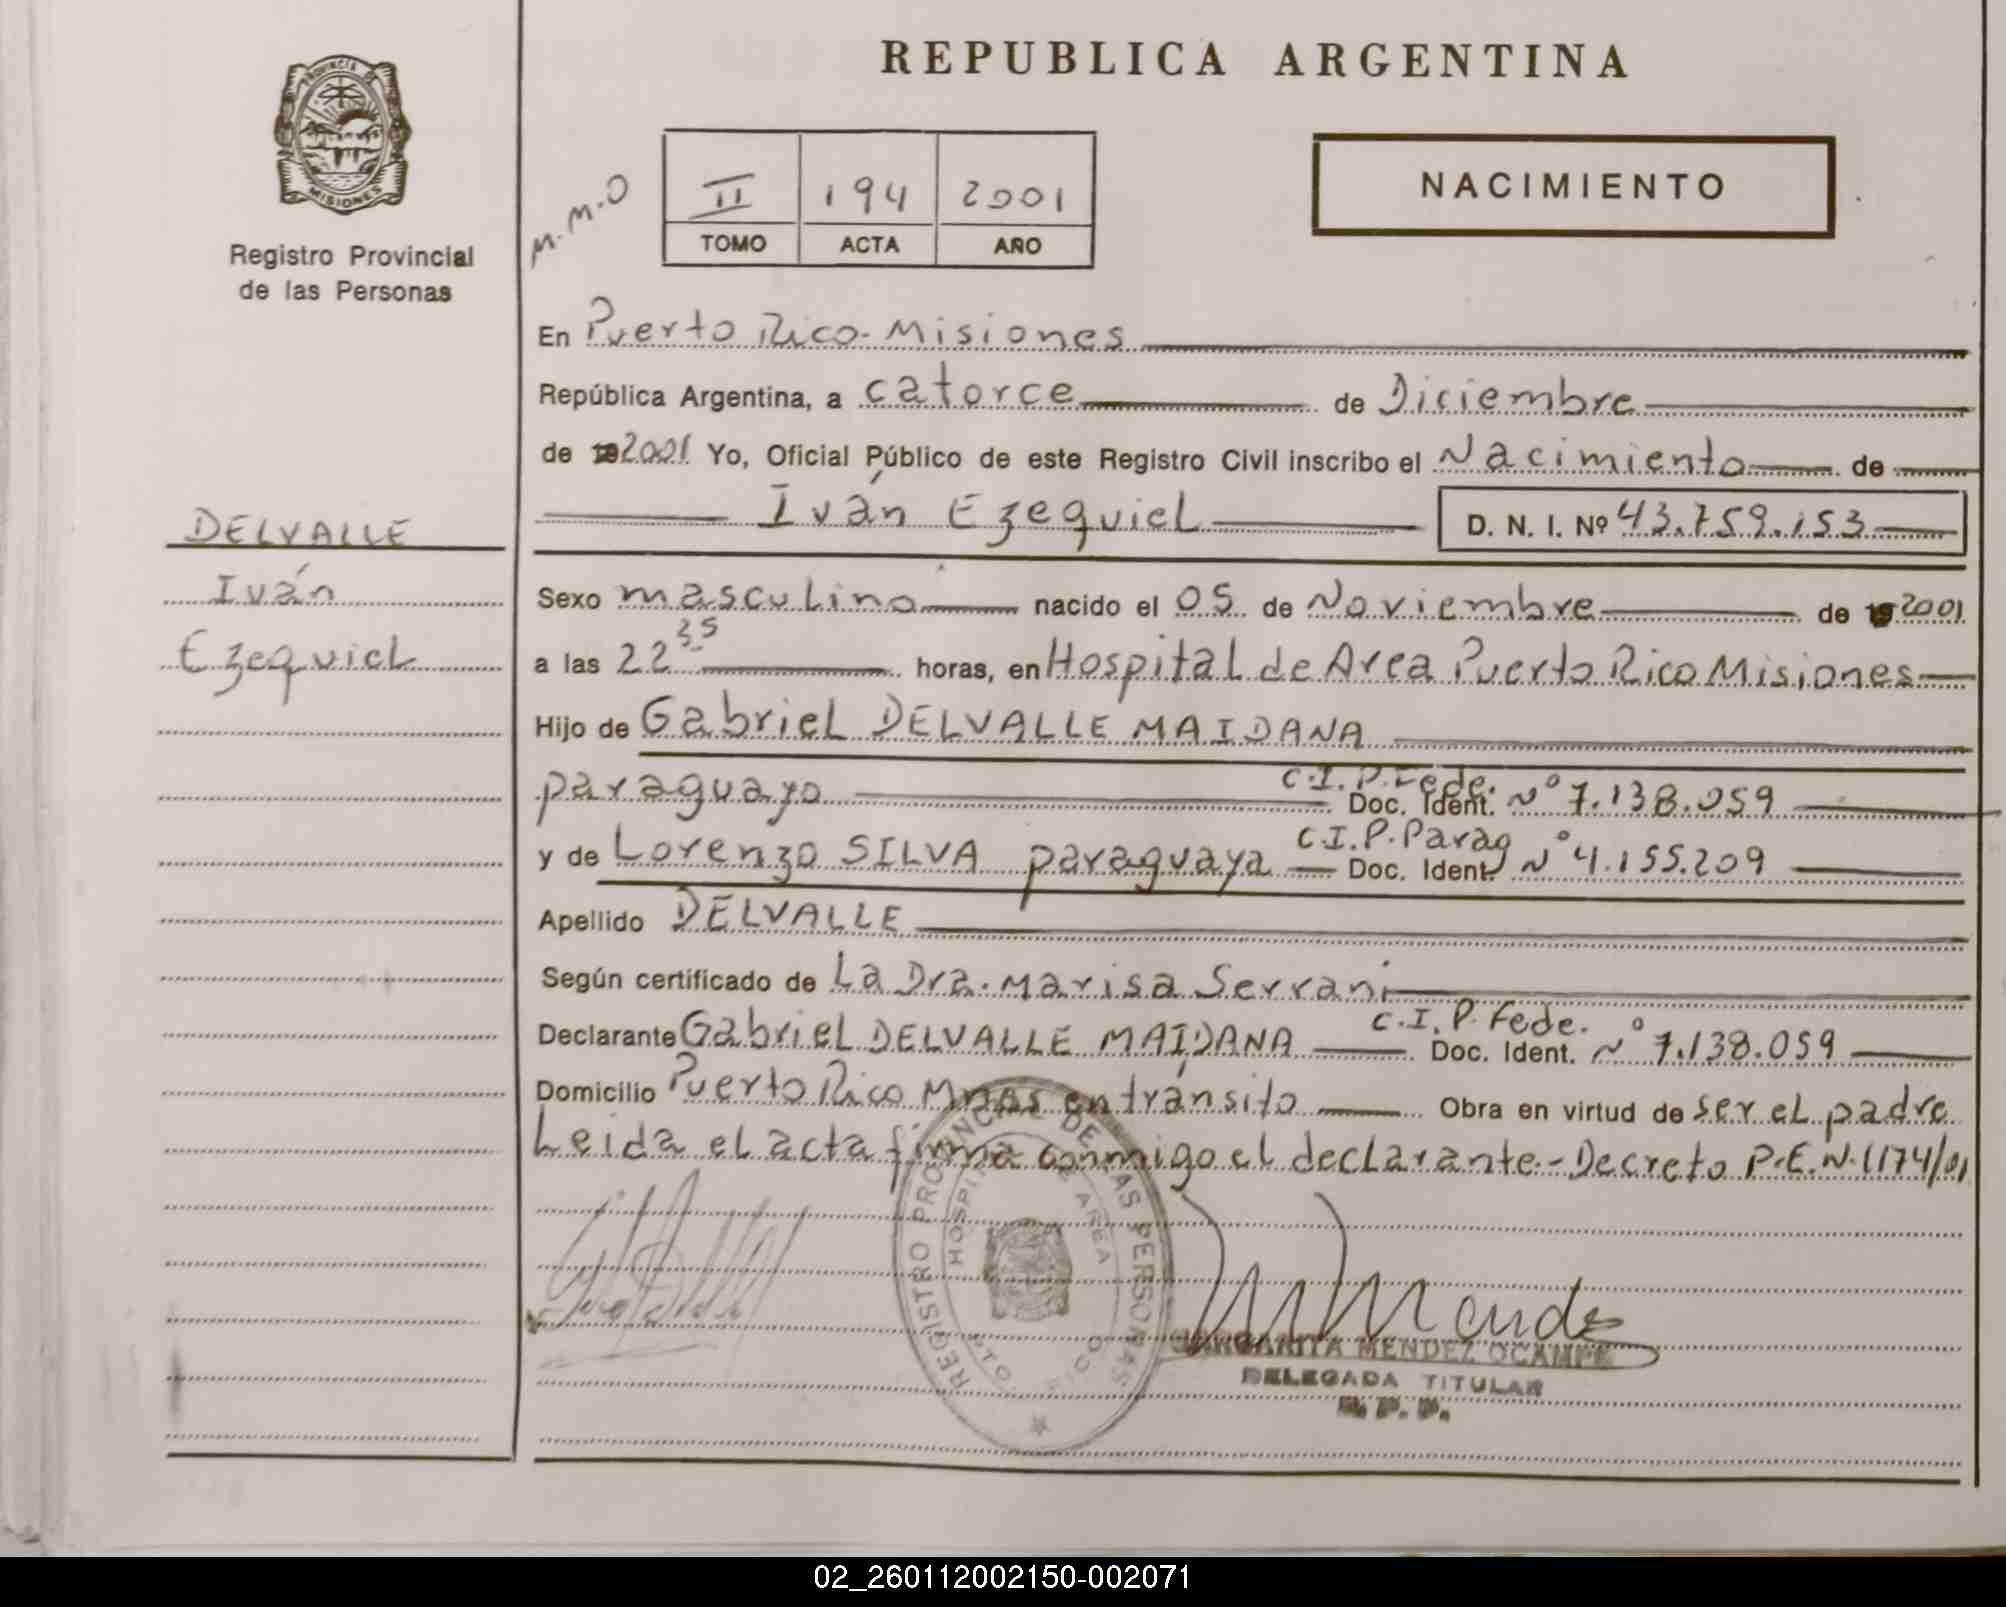 REPUBLICA ARGENTINA
PROVINCIA DE
MISIONES
Registro Provincial
de las Personas
M.M.O
II 194 2001
TOMO ACTA AÑO
NACIMIENTO
En Puerto Rico-Misiones
República Argentina, a catorce de Diciembre
de 19 2001 Yo, Oficial Público de este Registro Civil inscribo el Nacimiento de
Iván Ezequiel D. N. I. Nº 43.759.153
DELVALLE
Iván
Ezequiel
Sexo masculino nacido el 05 de Noviembre de 19 2001
a las 22 35 horas, en Hospital de Area Puerto Rico Misiones
Hijo de Gabriel DELVALLE MAIDANA
paraguayo C.I.P.Fede. Doc. Ident. Nº 7.138.059
y de Lorenzo SILVA paraguaya C.I.P.Parag Doc. Ident. Nº 4.155.209
Apellido DELVALLE
Según certificado de La Dra. Marisa Serrani
Declarante Gabriel DELVALLE MAIDANA C.I.P.Fede. Doc. Ident. Nº 7.138.059
Domicilio Puerto Rico Mnas en tránsito Obra en virtud de ser el padre
Leida el acta firma conmigo el declarante.-Decreto P.E.N.1174/01
REGISTRO PROVINCIAL DE LAS PERSONAS
HOSPITAL DE AREA
PTO. RICO
MARGARITA MENDEZ OCAMPO
DELEGADA TITULAR
R. P. P.
02_260112002150-002071